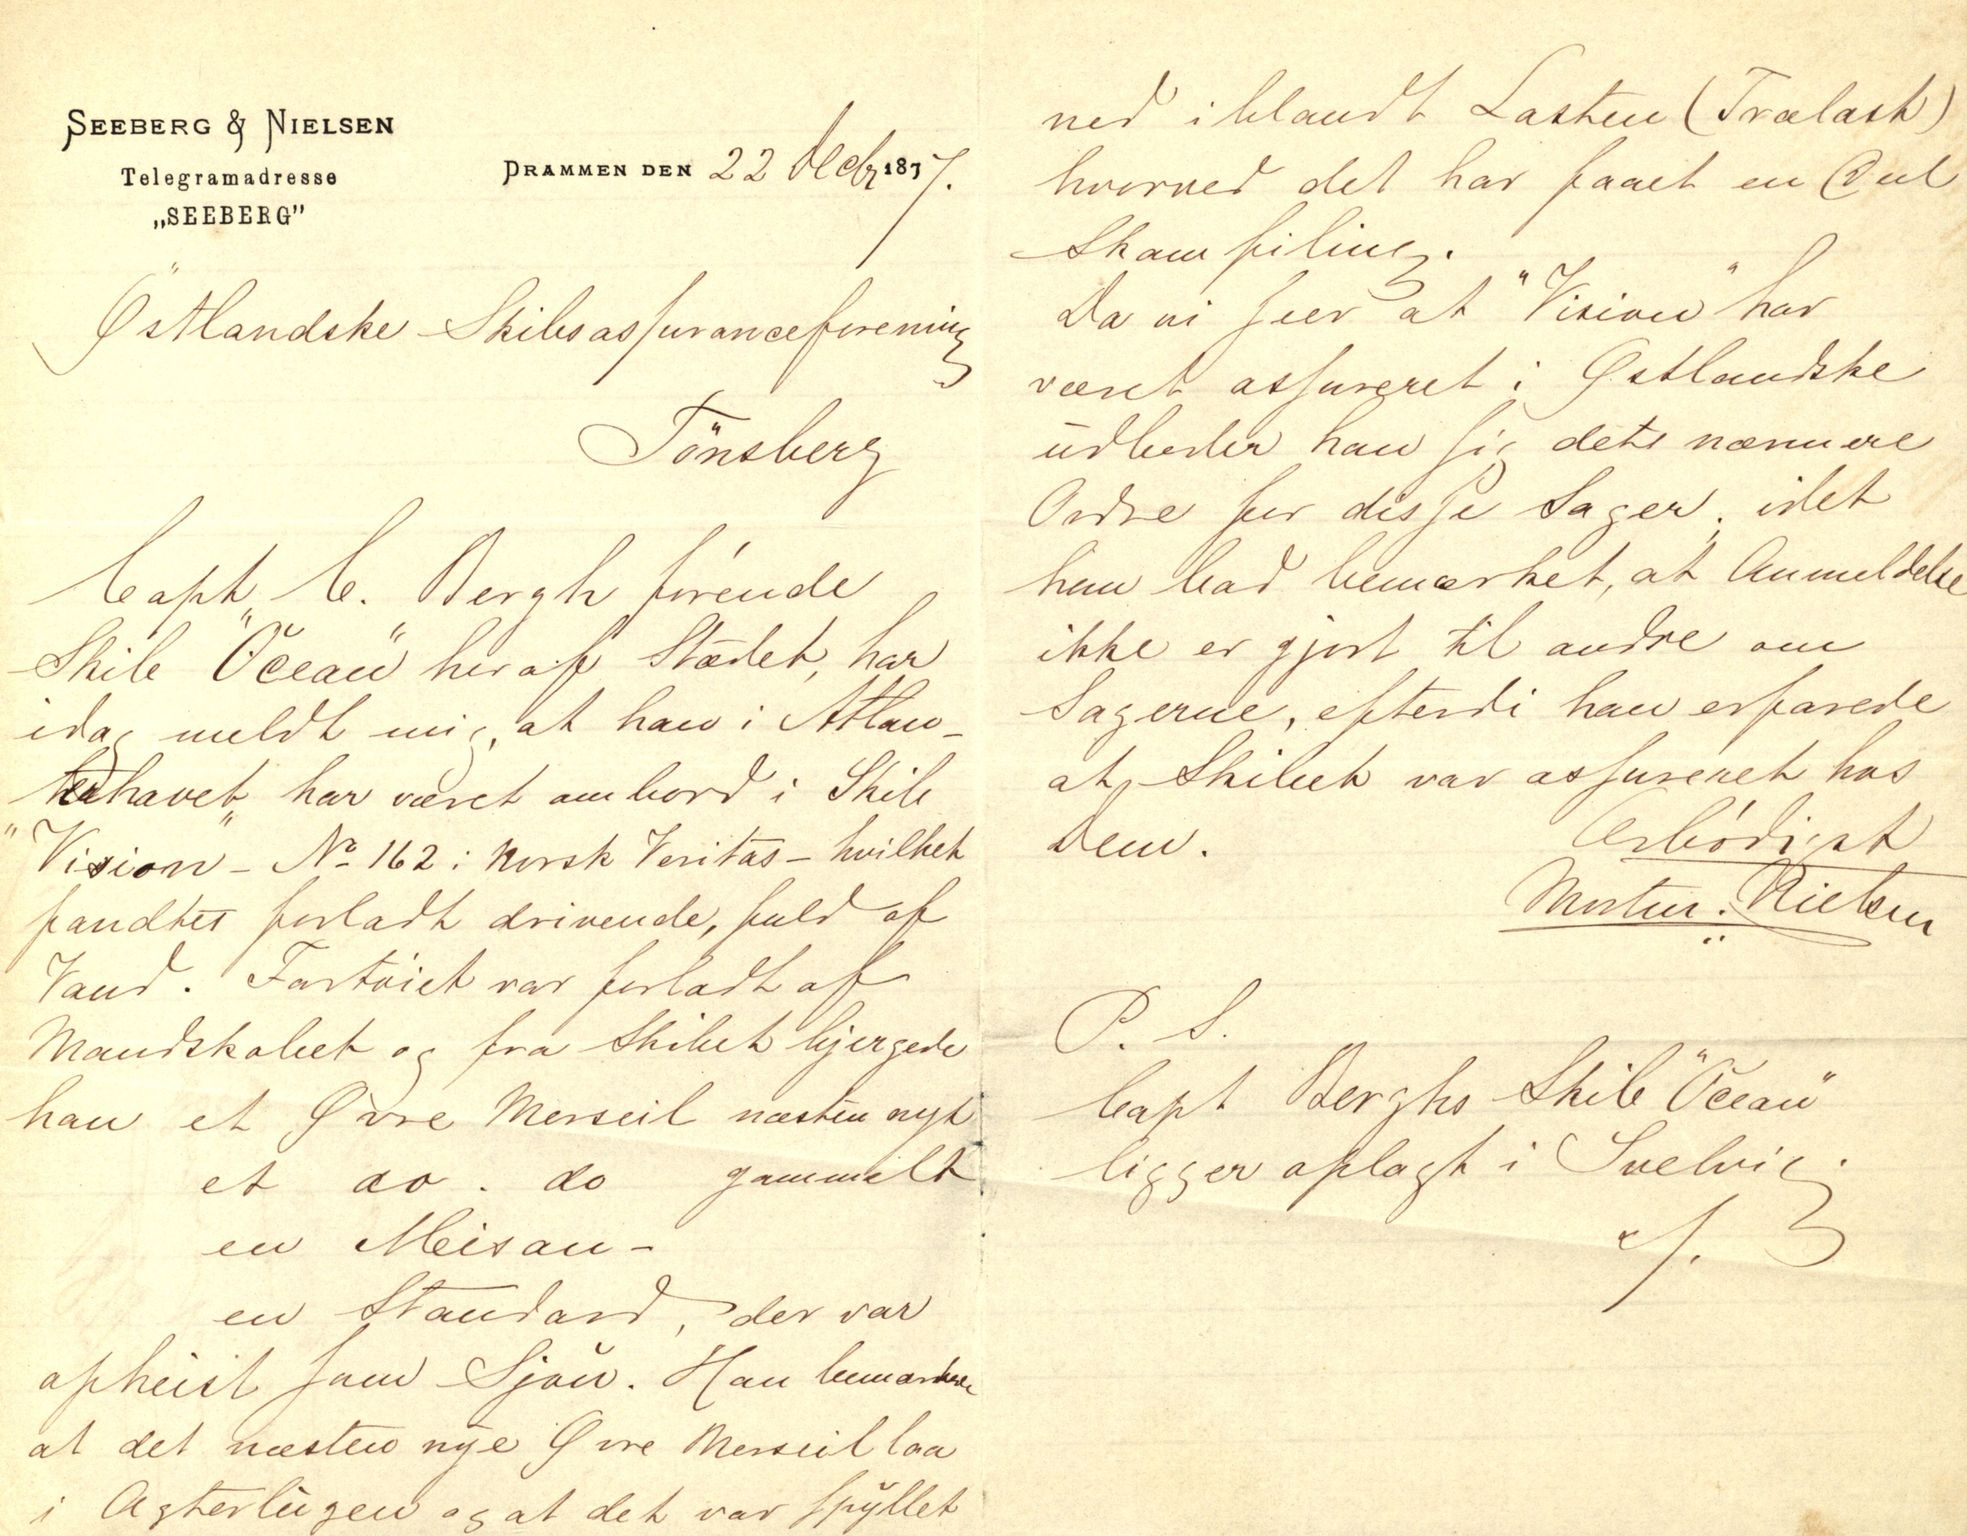 SEEBERG & NIELSEN
Telegramadresse
„SEEBERG”
DRAMMEN DEN 22 Decbr 1877.
Østlandske Skibsassuranceforening
Tönsberg
Capt C. Bergh förende
Skib "Ocean" her af Stædet, har
idag meldt mig, at han i Atlan-
terhavet har været ombord i Skib
"Vision" - No 162 i Norsk Veritas - hvilket
fandtes forladt drivende, fuld af
Vand. Fartöiet var forladt af
Mandskabet og fra Skibet bjergede
han et Øvre Merseil næsten nyt
et do. do gammelt
en Mesan -
en Standard, der var
opheist som Sjøu. Han bemærkede
at det næsten nye Øvre Merseil laa
i Agterlugen og at det var skyllet
ned iblandt Lasten (Trælast)
hvorved det har faaet en Del
Skamfiling.
Da vi seer at "Vision" har
været assureret i Østlandske
udbeder han sig dets nærmere
Ordre for disse Sager, idet
han bad bemærket, at Anmeldelse
ikke er gjort til andre om
Sagerne, efterdi han erfarede
at Skibet var assureret hos
Dem.
Ærbödigst
Morten Nielsen
P. S.
Capt Berghs Skib "Ocean"
ligger oplagt i Svelvig.